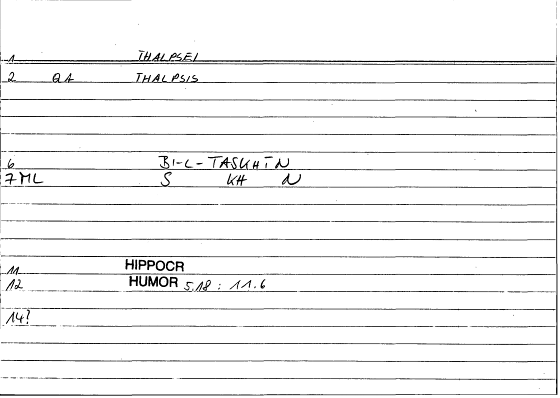 1 THALPSEI
2 QA THALPSIS
6 BI-L-TASKHIN
7 ML S KH N
11 HIPPOCR
12 HUMOR 5.18 : 11.6
14?